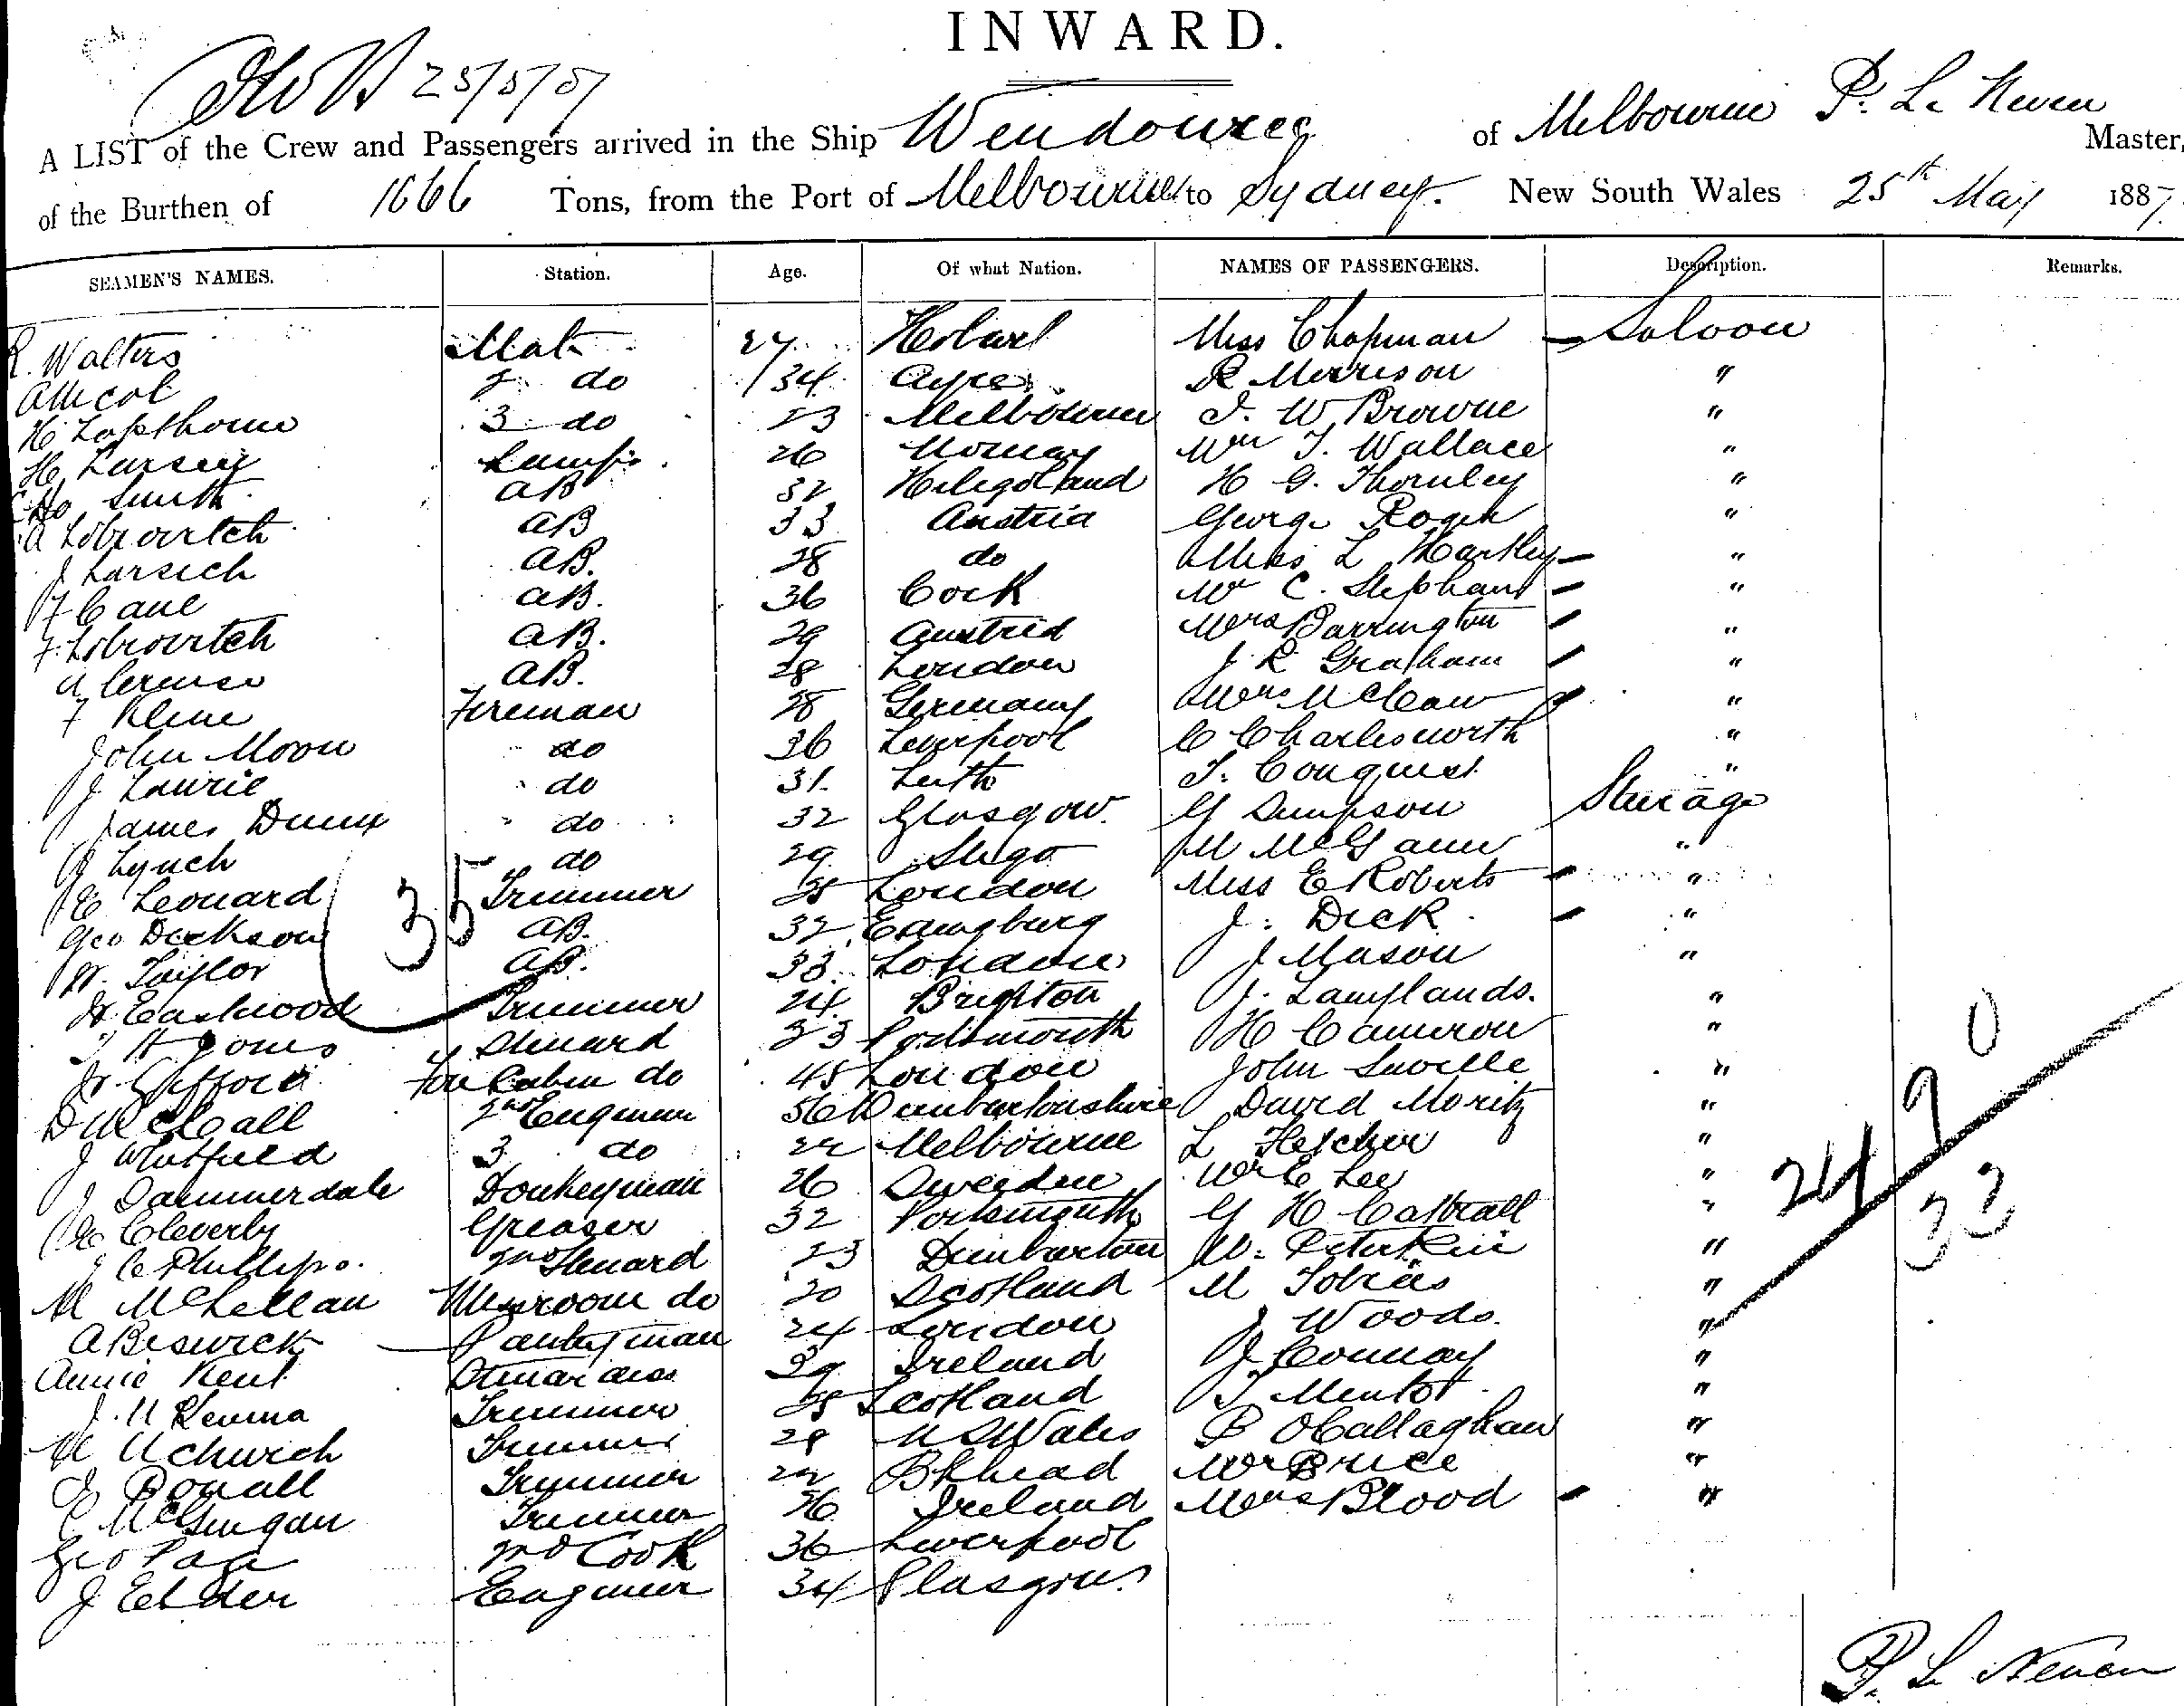 INWARD.
25/5/87
A LIST of the Crew and Passengers arrived in the Ship Wendouree of Melbourne P. Le Neven Master,
of the Burthen of 1666 Tons, from the Port of Melbourne to Sydney. New South Wales 25th May 1887.
SEAMEN'S NAMES. Station. Age. Of what Nation. NAMES OF PASSENGERS. Description. Remarks.
R. Walters Mate 27 Hobart Miss Chapman Saloon
A Nicol 2 do 34 Ayre R Morrison "
H Lapthorne 3 do 23 Melbourne J. W Browne "
H Larsen Lamps 26 Norway Wm T. Wallace "
Smith AB 32 Heligoland H G. Thornley "
A Lobrovitch AB 33 Austria George "
J Larsich AB. 28 do Miss L Hartley "
F Cane AB. 36 Cork Mr C. Stephens "
F. Lobrovitch AB. 29 Austria Mrs Barrington "
A AB. 28 London J R Graham "
F Kline Fireman 28 Germany Mrs McCaw "
John Moon do 36 Liverpool C Charlesworth "
J Laurie do 31. Leith T. Conquest "
James Dunn do 32 Glasgow. G Simpson Steerage
J Lynch do 29 Sligo M McGann "
E Leonard 35 Trimmer 25 London Miss E Roberts "
Geo Dickson AB. 32 Edingburg J. Dick "
W. Taylor AB. 33 London J Mason "
H Eastwood Trimmer 24. Brighton J. Langlands. "
T H Jones Steward 23 Portsmouth H Cameron " 0
W Gifford Fore Cabin do 45 London John Saville "
D McCall 2nd Engineer 56 Dumbartonshire David Moritz " 9
J Whitfield 3 do 22 Melbourne L Fletcher "
J Dammerdale Donkeyman 26 Sweeden Mr C Lee " 24
C Cleverly Greaser 32 Portsmouth G H Cattrall " 33
J C Phillips. 2nd Steward 23 Dumbarton W. Peterkin "
M McLellan Messroom do 20 Scotland M Tobias "
A Beswick Pantryman 24 London J Woods. "
Annie Kent Stewardess 39 Ireland J Conway "
J. McKenna Trimmer 25 Scotland T Minto "
M Church Trimmer 28 N S Wales B OCallaghan "
J Bonall Trimmer 22 Bkhead Mr Price "
E McGuigan Trimmer 26 Ireland Mrs Blood "
Geo Page 2nd Cook 36 Liverpool
J Elder Engineer 34 Glasgow
P. Le Neven